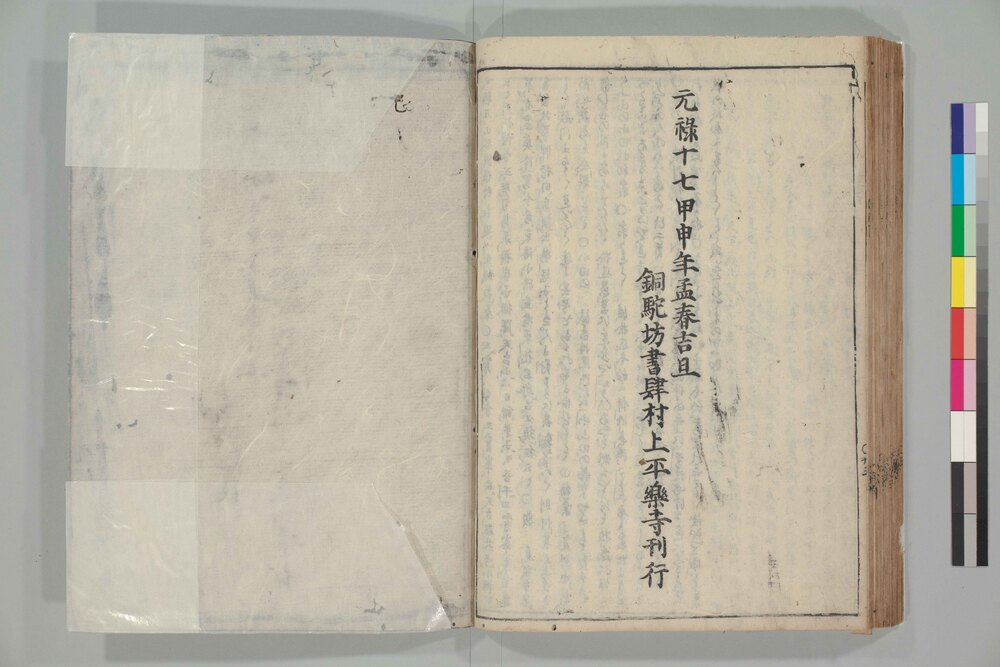 元祿十七甲申年孟春吉旦
銅駝坊書肆村上平樂寺刊行